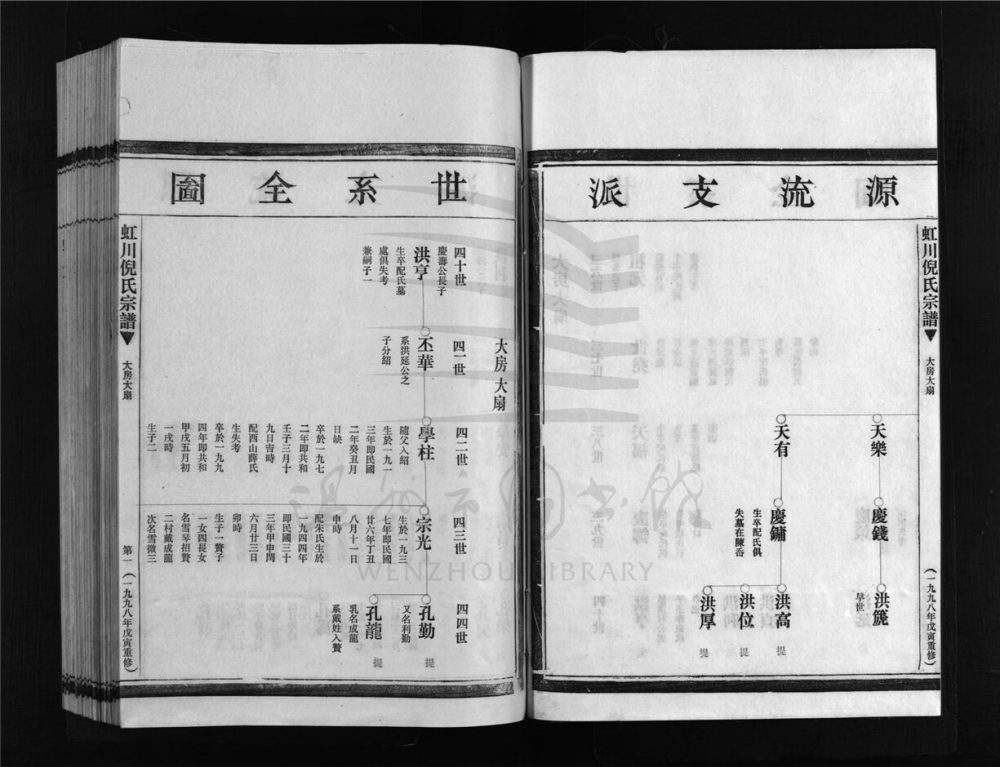 源流支派
虹川倪氏宗譜
大房大扇
(一九九八年戊寅重修)
天樂
慶錢
洪篪
早世
天有
慶鏞
生卒配氏俱
失墓在陳岙
洪高
提
洪位
提
洪厚
提
世系全圖
大房大扇
四十世
慶壽公長子
洪亨
生卒配氏墓
處俱失考
兼嗣子一
四一世
丕華
系洪延公之
子分紹
四二世
學柱
隨父入紹
生於一九一
三年即民國
二年癸丑月
日缺
卒於一九七
二年即共和
壬子三月十
九日吉時
配西山薛氏
生失考
卒於一九九
四年即共和
甲戌五月初
一戌時
生子二
四三世
宗光
生於一九三
七年即民國
廿六年丁丑
八月十一日
申時
配朱氏生於
一九四四年
即民國三十
三年甲申閏
六月廿三日
卯時
生子一贅子
一女四長女
名雪琴招贅
二村戴成龍
次名雪微三
四四世
孔勤
又名利勤
提
孔龍
乳名成龍
系戴姓入贅
提
虹川倪氏宗譜
大房大扇
第一
(一九九八年戊寅重修)
溫州市圖書館
WENZHOU LIBRARY